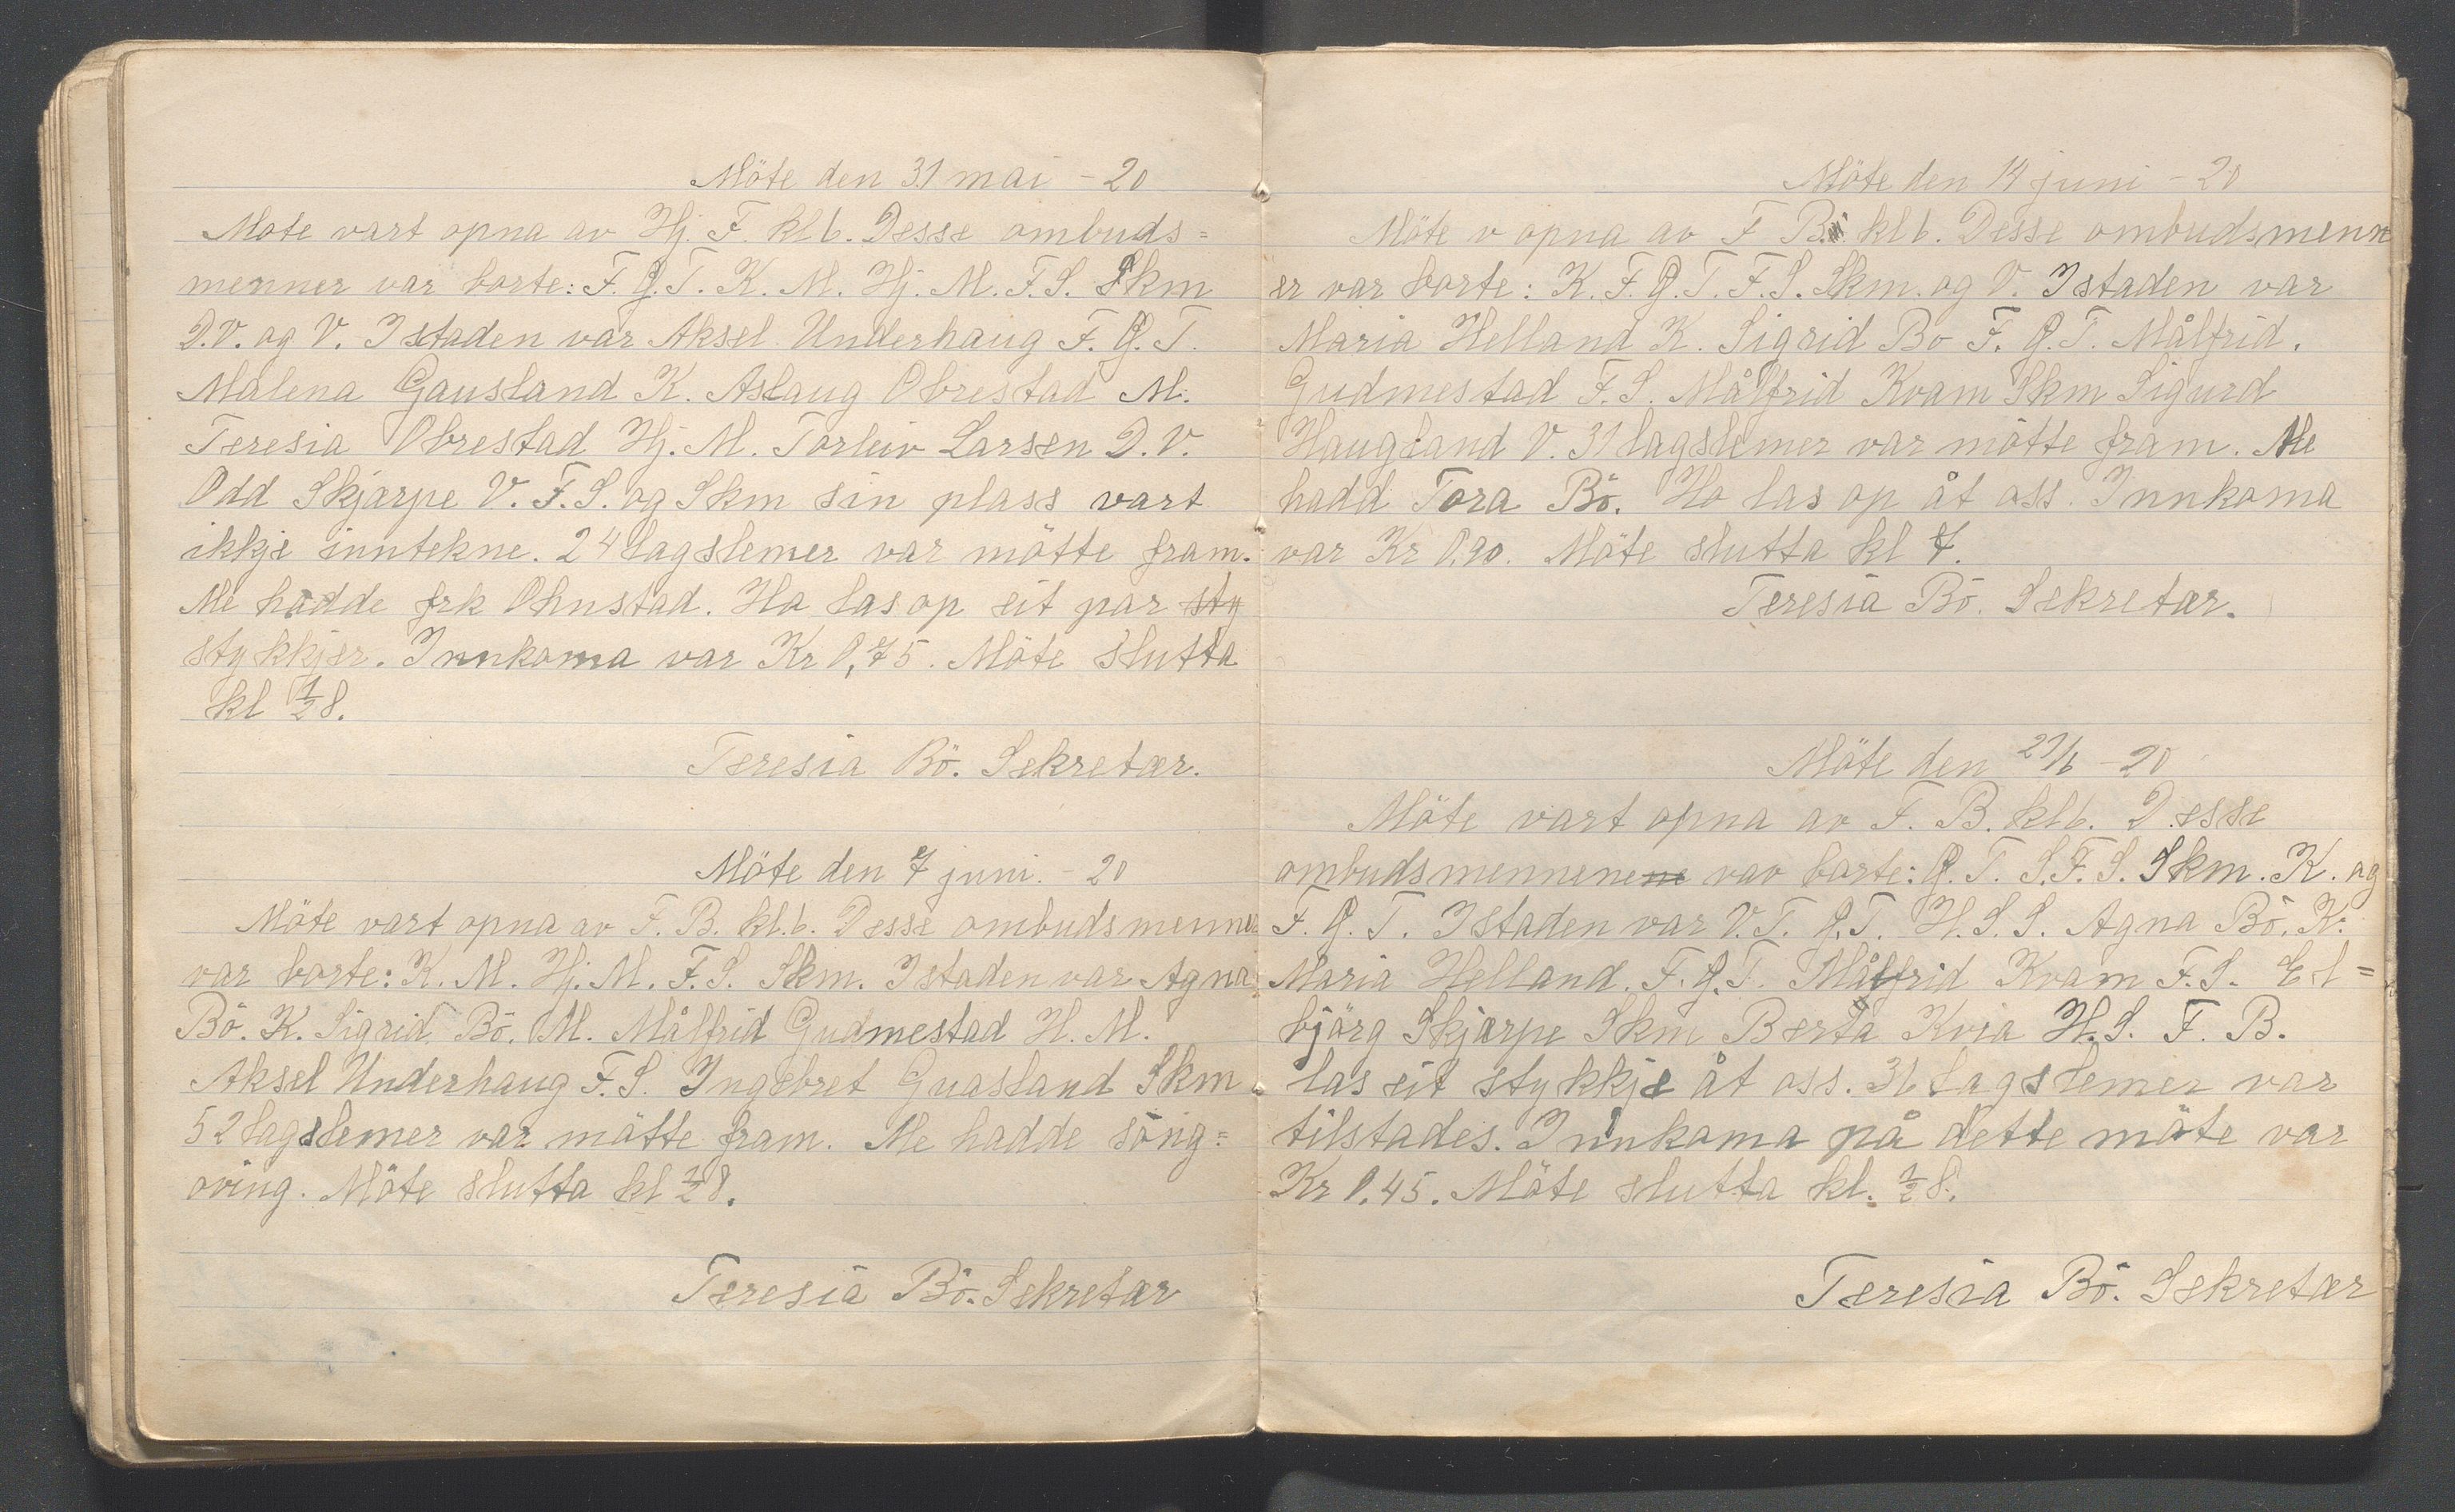 Möte den 31 mai - 20
Möte vart opna av Hj. F. kl 6. Desse ombuds=
menner var borte: F. G. T. K. M. Hj. M. F. S. Skm
D.V. og V. Istaden var Aksel Underhaug F. G. T.
Malena Gausland K. Aslaug Obrestad M.
Teresia Obrestad Hj. M. Torleiv Larsen D. V.
Odd Skjærpe V. F. S. og Skm sin plass vart
ikkje inntekne. 24 lagslemer var mötte fram.
Me hadde frk Ohnstad. Ho las op eit par sty
stykkjer. Innkoma var Kr 0,75. Möte slutta
kl ½8.
Teresia Bö. Sekretær.
Möte den 7 juni. - 20
Möte vart opna av F. B. kl. 6. Desse ombudsmenner
var borte: K. M. Hj. M. F. S. Skm. Istaden var Agna
Bö. K. Sigrid Bö. M. Målfrid Gudmestad H. M.
Aksel Underhaug F. S. Ingebret Guasland Skm
52 lagslemer var mötte fram. Me hadde söng=
öving. Möte slutta kl ½8.
Teresia Bö. Sekretær
Möte den 14 juni - 20
Möte v opna av F B. kl 6. Desse ombudsmenn
er var borte: K. F. G. T. F. S. Skm. og V. Istaden var
Maria Helland K. Sigrid Bö F. G. T. Målfrid.
Gudmestad F. S. Målfrid Kvam Skm Sigurd
Haugland V. 31 lagslemer var mötte fram. Me
hadd Tora Bö. Ho las op åt oss. Innkoma
var Kr 0.90. Möte slutta kl 7.
Teresia Bö. Sekretær.
Möte den 21/6 - 20
Möte vart opna av F. B. kl 6. Desse
ombudsmennenene var borte: G. T. S. F. S. Skm. K. og
F. G. T. Istaden var V. T. G. T. H. S. S. Agna Bö. K.
Maria Helland. F. G. T. Målfrid Kvam F. S. El=
björg Skjærpe Skm Berta Kvia H. S. F. B.
las eit stykkje åt oss. 36 lagslemer var
tilstades. Innkoma på dette möte var
Kr 0.45. Möte slutta kl. ½8.
Teresia Bö. Sekretær